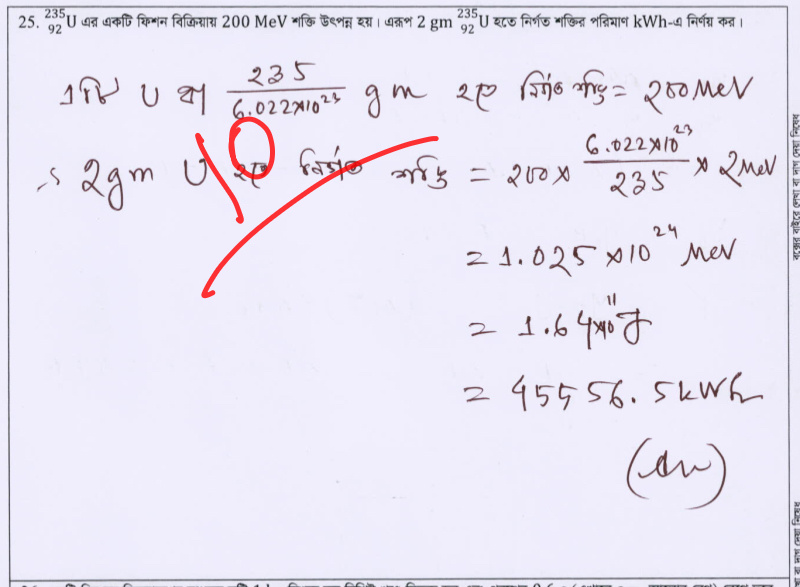 25. ²³⁵₉₂U এর একটি ফিশন বিক্রিয়ায় 200 MeV শক্তি উৎপন্ন হয়। এরূপ 2 gm ²³⁵₉₂U হতে নির্গত শক্তির পরিমাণ kWh-এ নির্ণয় কর।
একটি U বা 235/6.022×10²³ gm হতে নির্গত শক্তি = 200 MeV
∴ 2gm U হতে নির্গত শক্তি = 200 × 6.022×10²³/235 × 2 MeV
= 1.025 × 10²⁴ MeV
= 1.64×10¹¹ J
= 45556.5 kWh
(Ans)
বক্সের বাইরে লেখা বা দাগ দেয়া নিষেধ